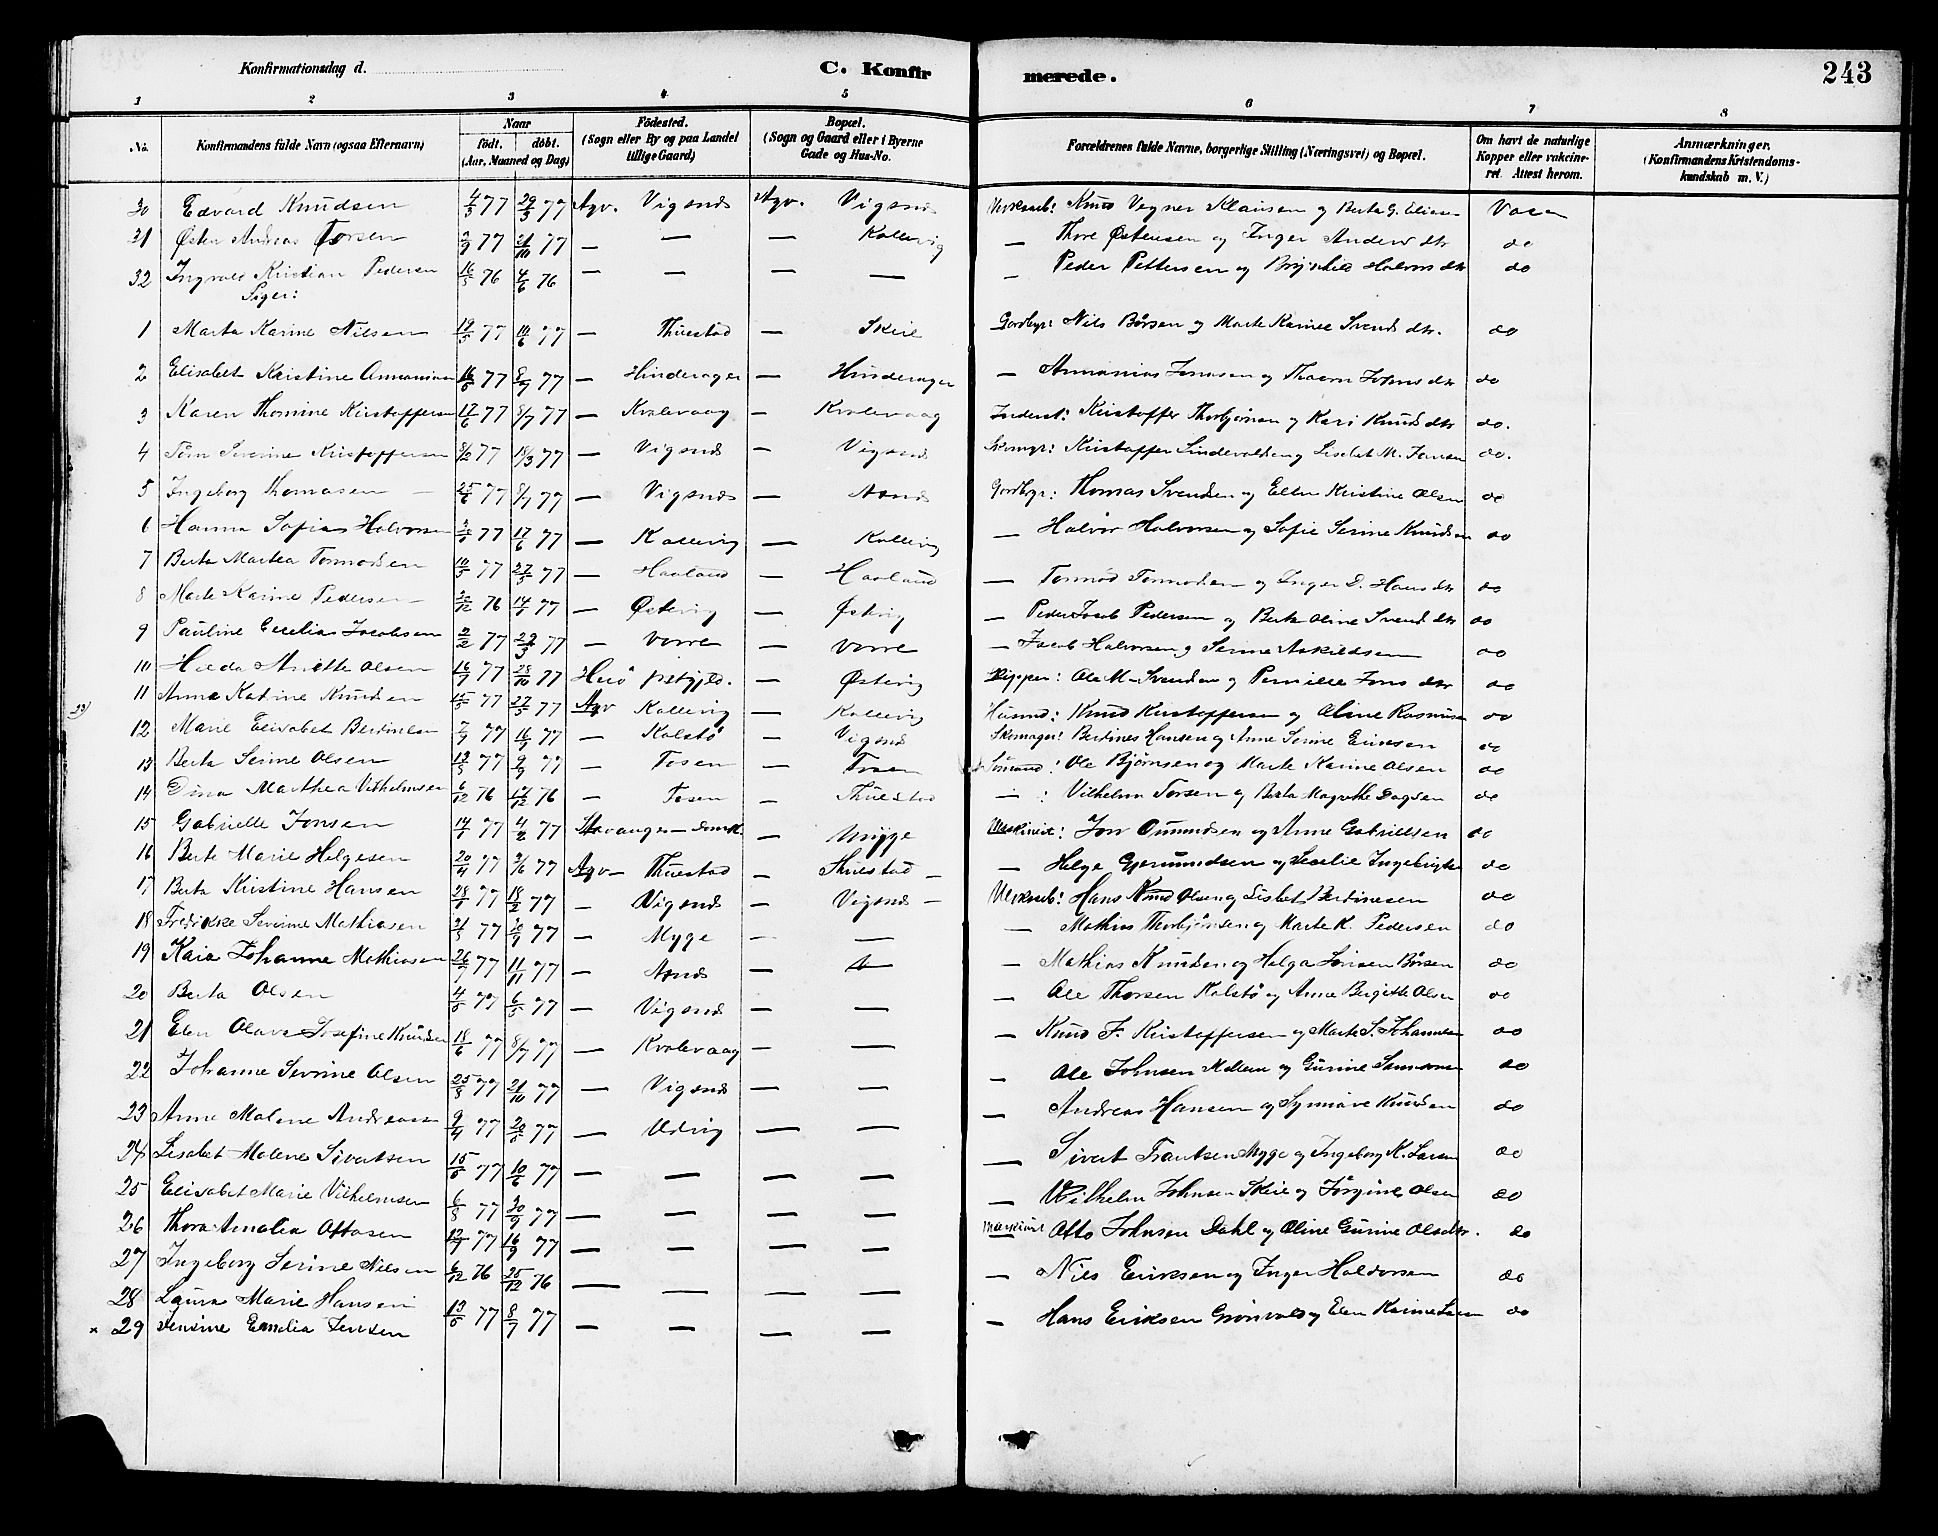 Konfirmationsdag d. C. Konfir merede. 243
1 2 3 4 5 6 7 8
No. Konfirmandens fulde Navn (ogsaa Efternavn) Naar födt. döbt. (Aar, Maaned og Dag) Födested. (Sogn eller By og paa Landet tillige Gaard) Bopæl. (Sogn og Gaard eller i Byerne Gade og Hus-No. Forældrenes fulde Navne, borgerlige Stilling (Næringsvei) og Bopæl. Om havt de naturlige Kopper eller vakcineret. Attest herom. Anmærkninger. (Konfirmandens Kristendomskundskab m. V.)
30 Edvard Knudsen 4/3 77 29/3 77 Agv. Vigsnes Agv. Vigsnes Knud Vegner Klausen og Berta G. Eliasen Vacc
31 Østen Andreas Torsen 2/9 77 21/10 77 — — — Kallevig — Thore Østensen og Inger Andersdtr do
32 Ingvald Kristian Pedersen 16/5 76 4/6 76 — — — — — Peder Pettersen og Halvorsdtr do
Piger:
1 Marta Karine Nilsen 19/5 77 10/6 77 — Thuestad — Skeie Gardbr: Nils Børsen og Marte Karine Svendsdtr. do
2 Elisabet Kristine Ammaniasen 16/6 77 8/7 77 — Hinderager — Hinderager — Ammanias Jonasen og do
3 Karen Thomine Kristoffersen 17/6 77 8/7 77 — Kvalevaag — Kvalevaag Inderst: Kristoffer Thorbjørnsen og Kari Knudsdtr do.
4 Severine Kristoffersen 8/2 77 18/3 77 — Vigsnes — Vigsnes Skomgr: Kristoffer og Lisabet M. Jonsen do.
5 Ingeborg Thomasen 25/6 77 8/7 77 — Vigsnes — Gardbgr: Thomas Svendsen og Ellen Kristine Olsen do
6 Hanna Sofia Halvorsen 77 17/6 77 — Kallevig — Kallevig — Halvor Halvorsen og Sofie Serine Knudsen do
7 Berta Martea Tormodsen 10/5 77 27/5 77 — Haaland — Haaland — Tormod Tormodsen og Inger D. Hansdtr do
8 Marte Karine Pedersen 30/12 76 14/1 77 — Østevig — Østevig — Peder Jacob Pedersen og Berta Oline Svendsdtr do
9 Pauline Cecilia Jacobsen 2/2 77 29/3 77 — Vorre — Vorre — Jacob Halvorsen og Serine Askildsen do
10 Hulda Anette Olsen 16/9 77 28/10 77 — Østevig Skipper: Ole M. Svendsen og Pernille Jonsdtr do
11 Anna Katrine Knudsen 15/5 77 27/5 77 Agv Kallevig — Kallevig Husmd: Knud Kristoffersen og Oline Rasmusen do
12 Marie Elisabet Bertinesen 77 16/9 77 — Kolstø — Vigsnes Skomager: Bertines Hansen og Anne Serine Eriksen do
13 Berta Serine Olsen 13/8 77 9/9 77 — Tosen — Tosen Sømand: Ole Bjørnsen og Marte Karine Olsen do
14 Dina Marthea Vilhelmsen 6/12 76 17/12 76 — Tosen — Thuestad — : Vilhelm Torsen og Berta Magrethe Dagsen do
15 Gabrielle Jonsen 14/1 77 4/2 77 Stavanger — Domk. — Mygge Maskinist: Jon Omundsen og Anne Gabrielsen do
16 Berte Marie Helgesen 20/4 77 77 Agv — Thuestad — Thuestad — — Helge Gjermundsen og Cecelie Ingebrigtsen do
17 Berta Kristine Hansen 28/1 77 18/2 77 — Vigsnes — Vigsnes — Verksarb: Hans Knud Olsen og Lisbet Bertinesen do
18 Fredrikke Severine Mathiasen 21/8 77 30/9 77 — Myge — — — Mathias Thorbjørnsen og Marte K. Pedersen do
19 Kaia Johanne Mathiasen 26/7 77 11/11 77 — — — Mathias Knudsen og Helga Børsen do
20 Berta Olsen 4/5 77 6/5 77 — Vigsnes — — — Ole Thorsen Kolstø og Anne Bergitte Olsen do
21 Elen Olava Josefine Knudsen 18/6 77 8/7 77 — Kvalevaag — — — Knud F. Kristoffersen og Marte S. Johannesen do
22 Johanne Severine Olsen 25/8 77 21/10 77 — Vigsnes — — — Ole Johnsen og Gurine do
23 Anne Malene Andreasen 9/4 77 20/5 77 — Udvig — — — Andreas Hansen og Synnøve Knudsen do
24 Lisabet Malene Sivertsen 15/5 77 10/6 77 — — — — — Sivert Trautsen Mygge og Ingeborg K. Larsen do
25 Elisabet Marie Vilhelmsen 6/8 77 30/9 77 — — — — — Vilhelm Johnsen Skeie og Jørgine Olsen do
26 Thora Amalia Ottosen 12/7 77 16/9 77 — — — — Maskinist Otto Johnsen Dahl og Oline Gurine Olsdtr. do
27 Ingeborg Serine Nilsen 6/12 76 25/12 76 — — — — — Nils Eriksen og Inger Haldorsen do
28 Laura Marie Hansen 13/5 77 8/7 77 — — — — — Hans Eriksen Grønvold og Elen Karine Larsen do
× 29 Jensine Emelia Jensen